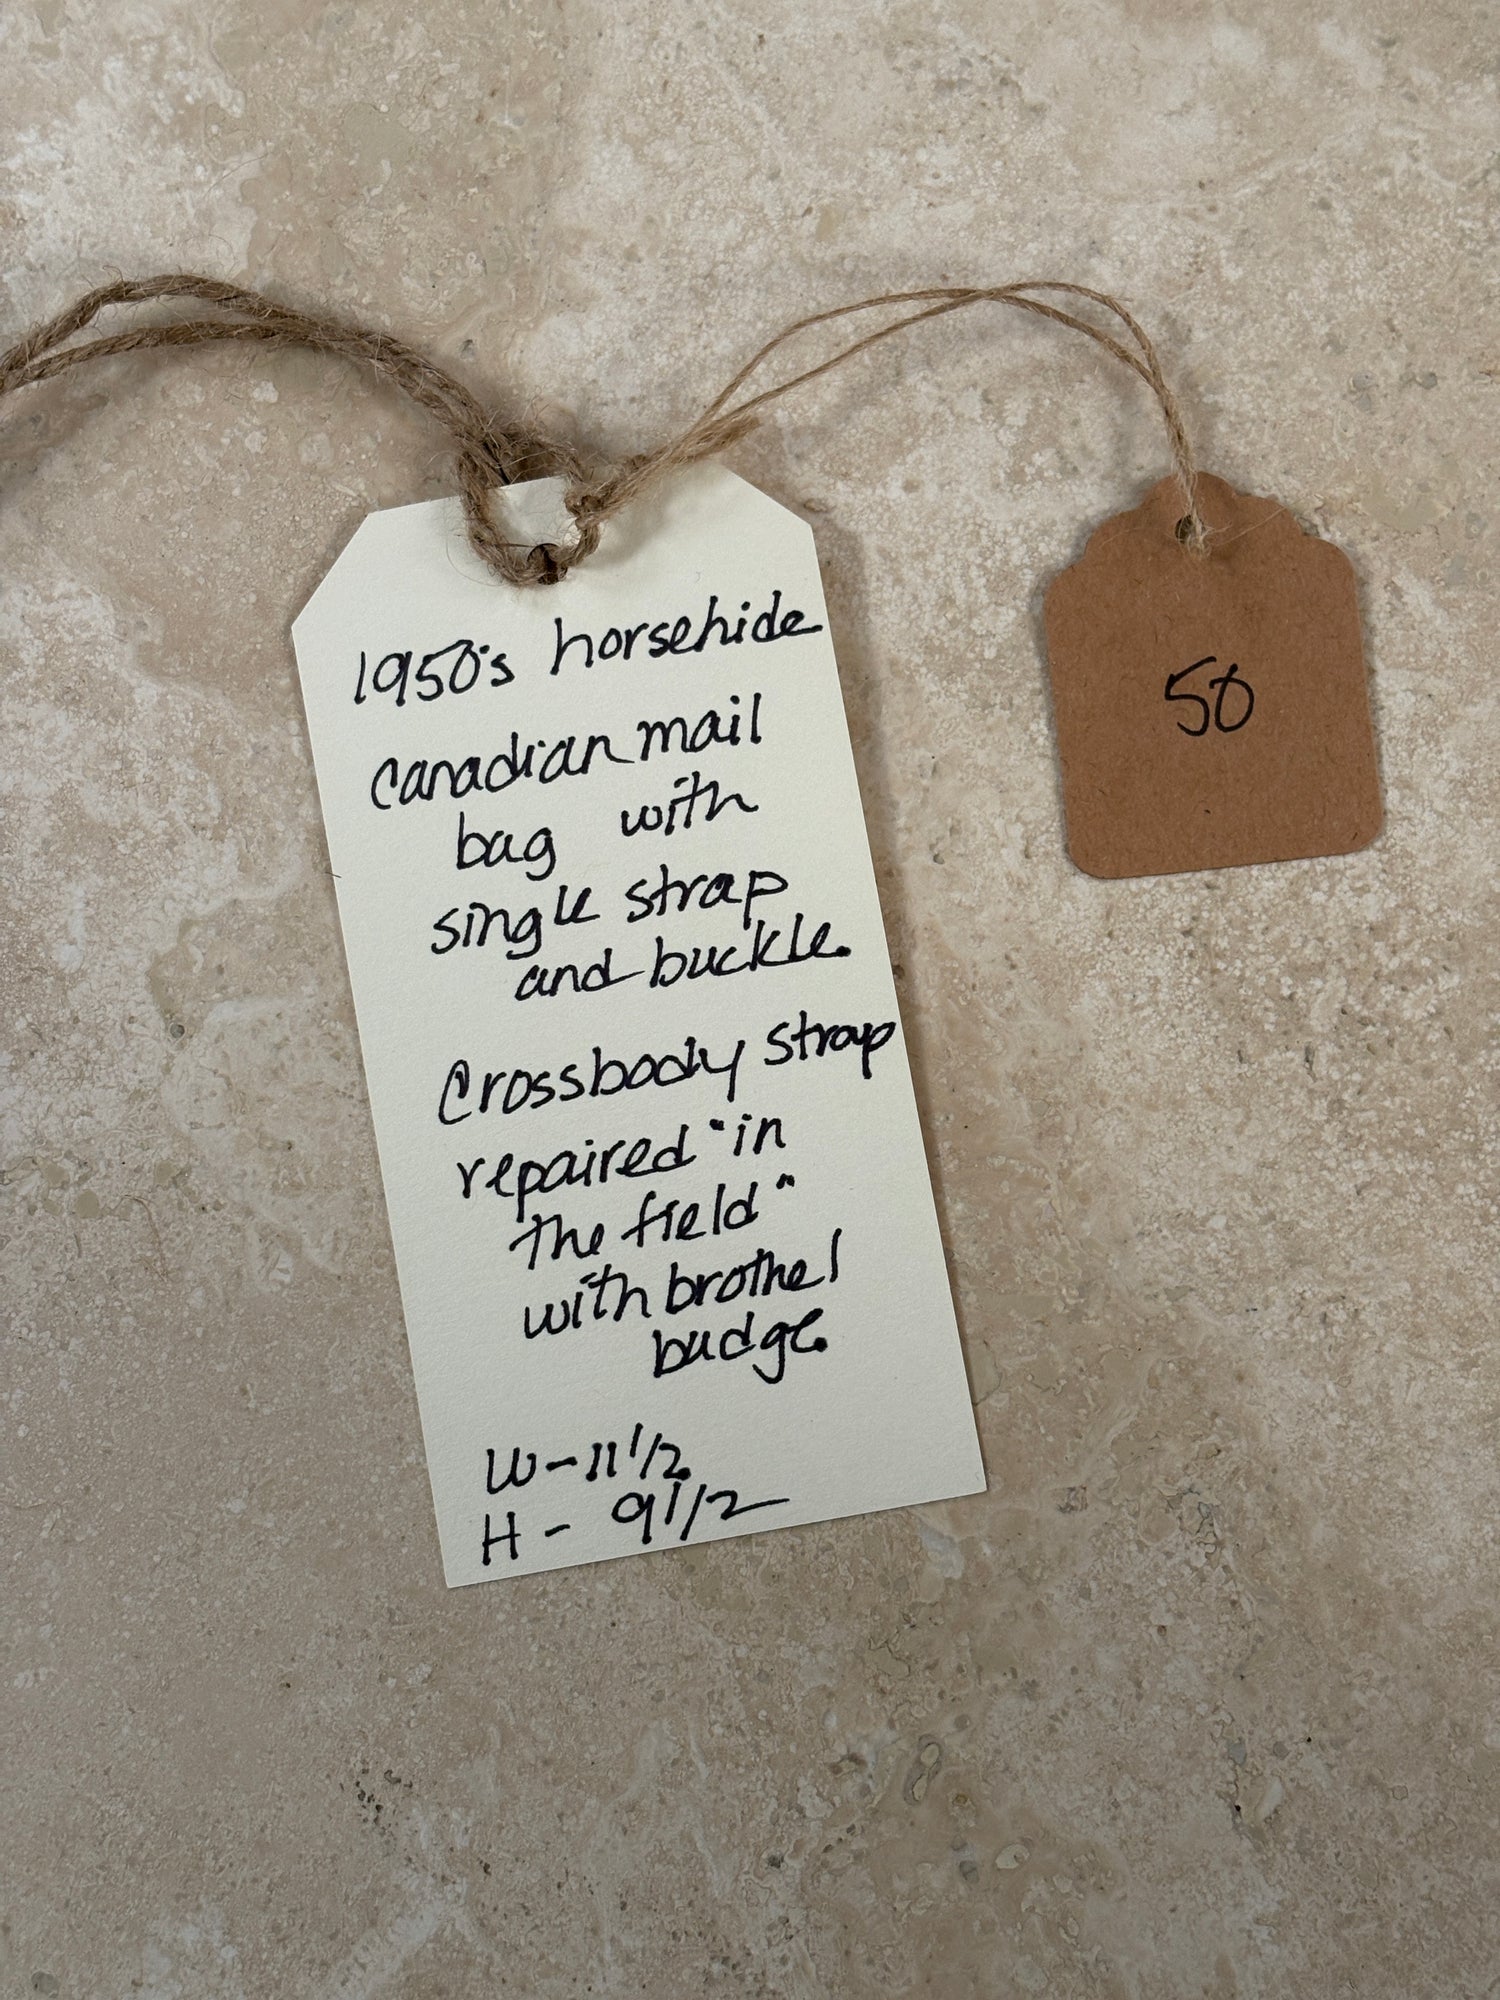 1950's horsehide
Canadian mail
bag with
single strap
and buckle.
Crossbody strap
repaired "in
the field"
with brothel
badge.
W-11 1/2
H - 9 1/2
50